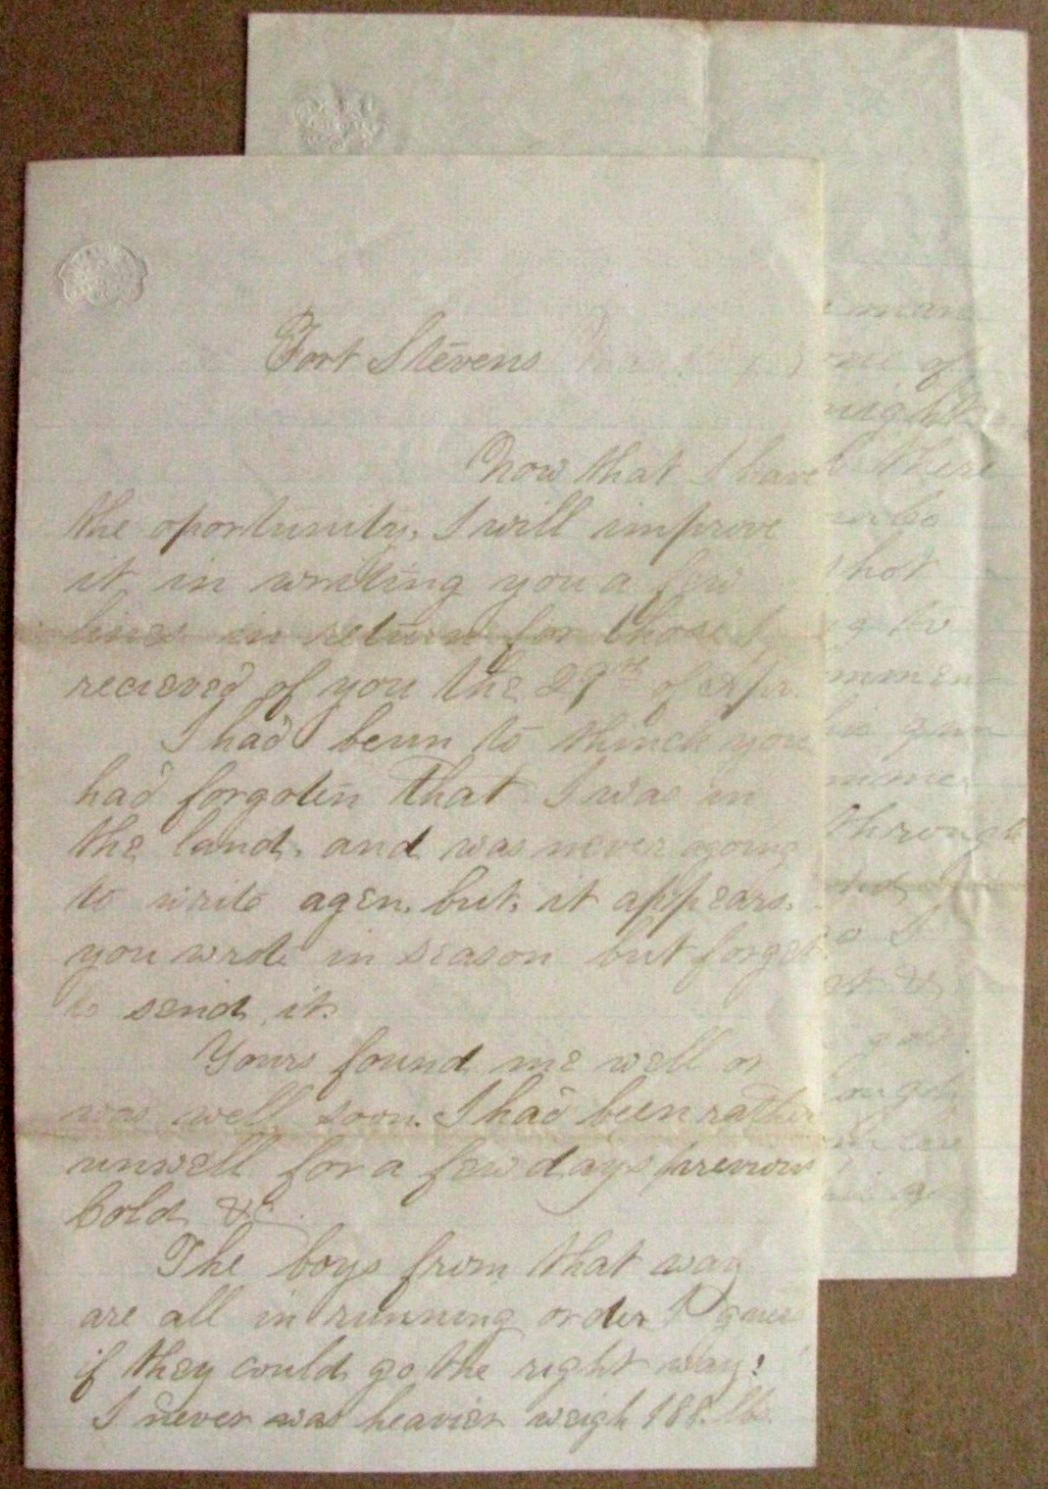 Fort Stevens
Now that I have
the oportunity, I will improve
it in writing you a few
lines in return for those I
recieved of you the 29th of Apr.
I had beun to thinck you
had forgoten that I was in
the land, and was never agoing
to write agen, but, it appears,
you wrote in season but forget
to send it.
Yours found me well or
was well soon. I had been rather
unwell for a few days previous
Cold &c.
The boys from that way
are all in running order I guess
if they could go the right way!
I never was heavier weigh 188. lbs.
man
of
night
there
shot
through